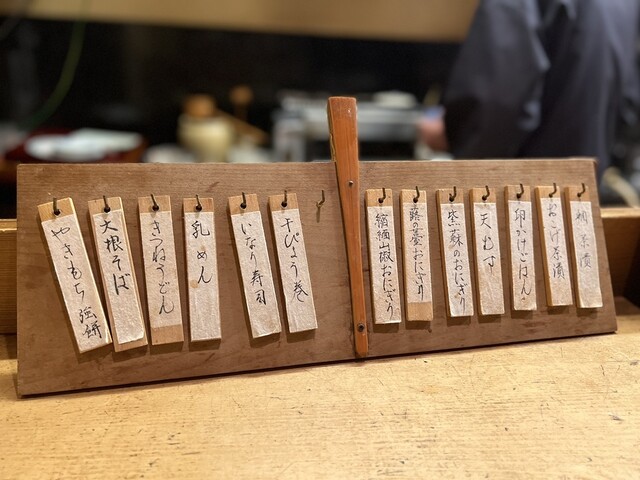 茶漬
おこげ茶漬
卵かけごはん
天むす
紫蘇のおにぎり
蕗の薹おにぎり
縮緬山椒おにぎり
干ぴょう巻
いなり寿司
乳めん
きつねうどん
大根そば
やきもち